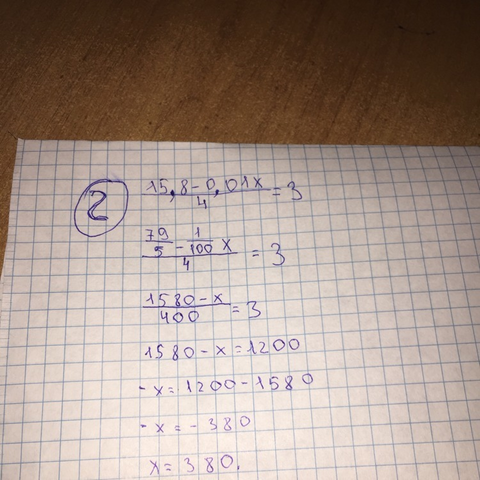 2
15,8-0,01x/4 = 3
79/5 - 1/100 x / 4 = 3
1580-x/400 = 3
1580-x=1200
-x=1200-1580
-x=-380
x=380.